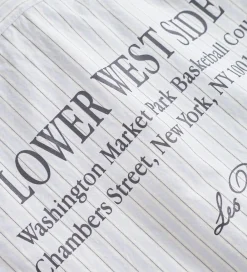 LOWER WEST SIDE
Washington Market Park Basketball Cou
Chambers Street, New York, NY 100
Les